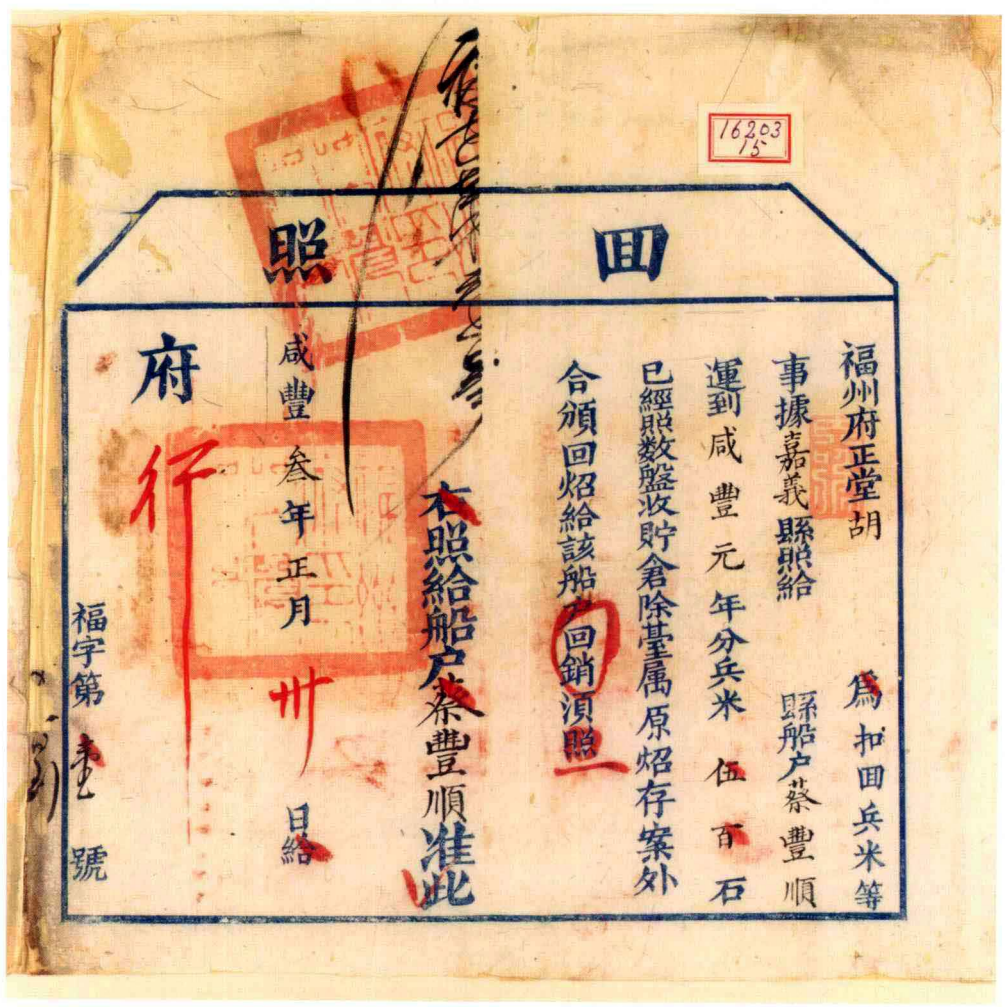 16203
15
回照
福州府正堂胡 爲扣回兵米等
事據嘉義縣照給 縣船户蔡豐順
運到咸豐元年分兵米伍百石
已經照数盤收貯倉除臺属原炤存案外
合頒回炤給該船户回銷湏照
本照給船户蔡豐順准此
咸豐叁年正月卅日給
府行
福字第壹號